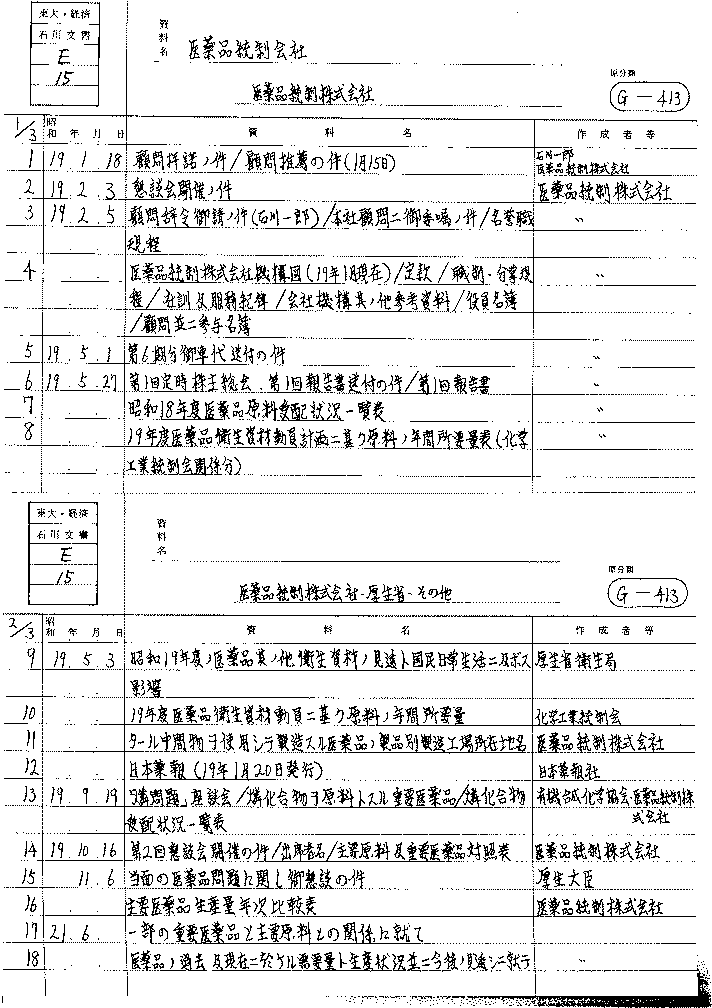 東大・経済
石川文書
E
15
資料名
医薬品統制会社
医薬品統制株式会社
原分類
G-413
1/3
昭和 年 月 日
資 料 名
作 成 者 等
1 19. 1. 18 顧問拝諾ノ件/顧問推薦の件(1月15日) 石川一郎 医薬品統制株式会社
2 19. 2. 3 懇談会開催ノ件 医薬品統制株式会社
3 19. 2. 5 顧問辞令御請ノ件(石川一郎)/本社顧問ニ御委嘱ノ件/名誉職 〃
規程
4 医薬品統制株式会社機構図(19年1月現在)/定款/職制・分掌規 〃
程/社訓及服務紀律/会社機構其ノ他参考資料/役員名簿
/顧問並ニ参与名簿
5 19. 5. 1 第6期分御車代送付の件 〃
6 19. 5. 27 第1回定時株主総会、第1回報告書送付の件/第1回報告書 〃
7 昭和18年度医薬品原料受配状況一覧表 〃
8 19年度医薬品衛生資材動員計画ニ基ク原料ノ年間所要量表(化学 〃
工業統制会関係分)
東大・経済
石川文書
E
15
資料名
医薬品統制株式会社・厚生省・その他
原分類
G-413
2/3
昭和 年 月 日
資 料 名
作 成 者 等
9 19. 5. 3 昭和19年度ノ医薬品其ノ他衛生資材ノ見透ト国民日常生活ニ及ボス 厚生省衛生局
影響
10 19年度医薬品衛生資材動員ニ基ク原料ノ年間所要量 化学工業統制会
11 タール中間物ヲ使用シテ製造スル医薬品ノ製品別製造工場所在地名 医薬品統制株式会社
12 日本薬報(19年1月20日発行) 日本薬報社
13 19. 9. 19 「燐問題」座談会/燐化合物ヲ原料トスル重要医薬品/燐化合物 有機合成化学協会・医薬品統制株式会社
受配状況一覧表
14 19. 10. 16 第2回懇談会開催の件/出席者名/主要原料及重要医薬品対照表 医薬品統制株式会社
15 11. 6 当面の医薬品問題に関し御懇談の件 厚生大臣
16 主要医薬品生産量年次比較表 医薬品統制株式会社
17 21. 6. 一部の重要医薬品と主要原料との関係に就て
18 医薬品ノ過去及現在ニ於ケル需要量ト生産状況並ニ今後ノ見透シニ就テ 〃